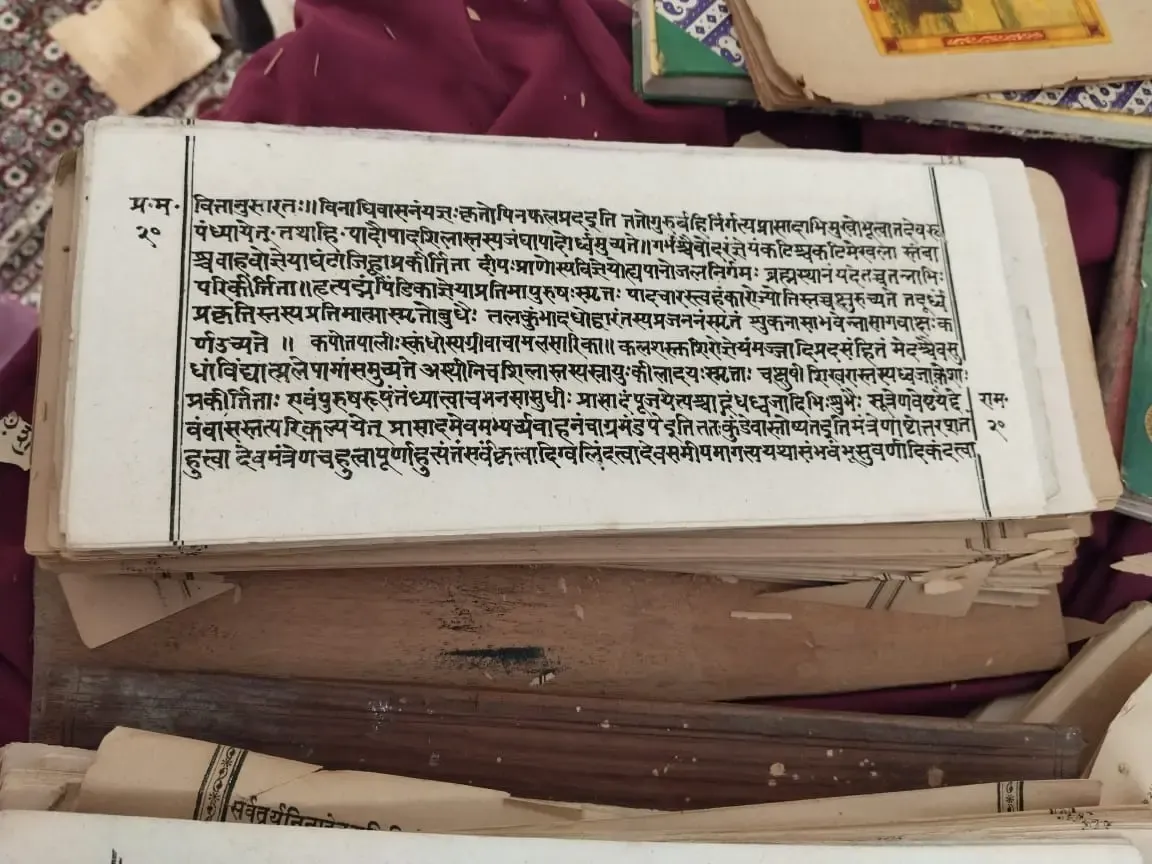 प्र॰म॰ वित्तानुसारतः॥विनाधिवासनंयज्ञःकृतोपिनफलप्रदइति ततोगुरुर्बहिर्निर्गत्यप्रासादाभिमुखोभूत्वातदेवस्व
२० पंध्यायेत् तथाहि पादौपादशिलास्तस्यजंघापादोर्ध्वमुच्यते॥गर्भश्चैवोदरंज्ञेयंकटिश्चकटिमेखला स्तंभा
श्चबाहवोज्ञेयाघंटाजिह्वाप्रकीर्त्तिता दीपःप्राणोस्यविज्ञेयोह्यपानोजलनिर्गमः ब्रह्मस्थानंयदेतच्चतन्नाभिः
परिकीर्त्तिता॥हृत्पद्मंपिंडिकाज्ञेयाप्रतिमापुरुषःस्मृतः पादचारस्त्वहंकारोज्योतिस्तच्चक्षुरुच्यते तदूर्ध्वं
प्रकृतिस्तस्यप्रतिमात्मास्मृतोबुधैः तलकुंभादधोद्वारंतस्यप्रजननंस्मृतं शुकनासाभवेन्नासागवाक्षःक
र्णउच्यते ॥ कपोतपालीःस्कंधोस्यग्रीवाचामलसारिका॥कलशस्तुशिरोज्ञेयंमज्जादिप्रदसंहितं मेदश्चैवसु
धांविंद्यात्प्रलेपोमांसमुच्यते अस्थीनिचशिलास्तस्यस्नायुःकीलादयःस्मृताः चक्षुषी शिखरास्तस्यध्वजाकेशाः
प्रकीर्तिताः एवंपुरुषरूपंतंध्यात्वाचमनसासुधीः प्रासादंपूजयेत्पश्चाद्गंधध्वजादिभिःशुभैः सूत्रेणवेष्टयेद्दे राम॰
वंवासस्तत्परिकल्पयेत् प्रासादमेवमभ्यर्च्यवाहनंचाग्रमंडपे इतिततःकुंडेवास्तोष्पतइतिमंत्रेणाष्टोत्तरशतं २०
हुत्वा देवमंत्रेणचहुत्वापूर्णाहुत्यंतंसर्वंकृत्वादिग्बलिंदत्वादेवसमीपमागत्ययथासंभवंभूसुवर्णादिकंदत्वा